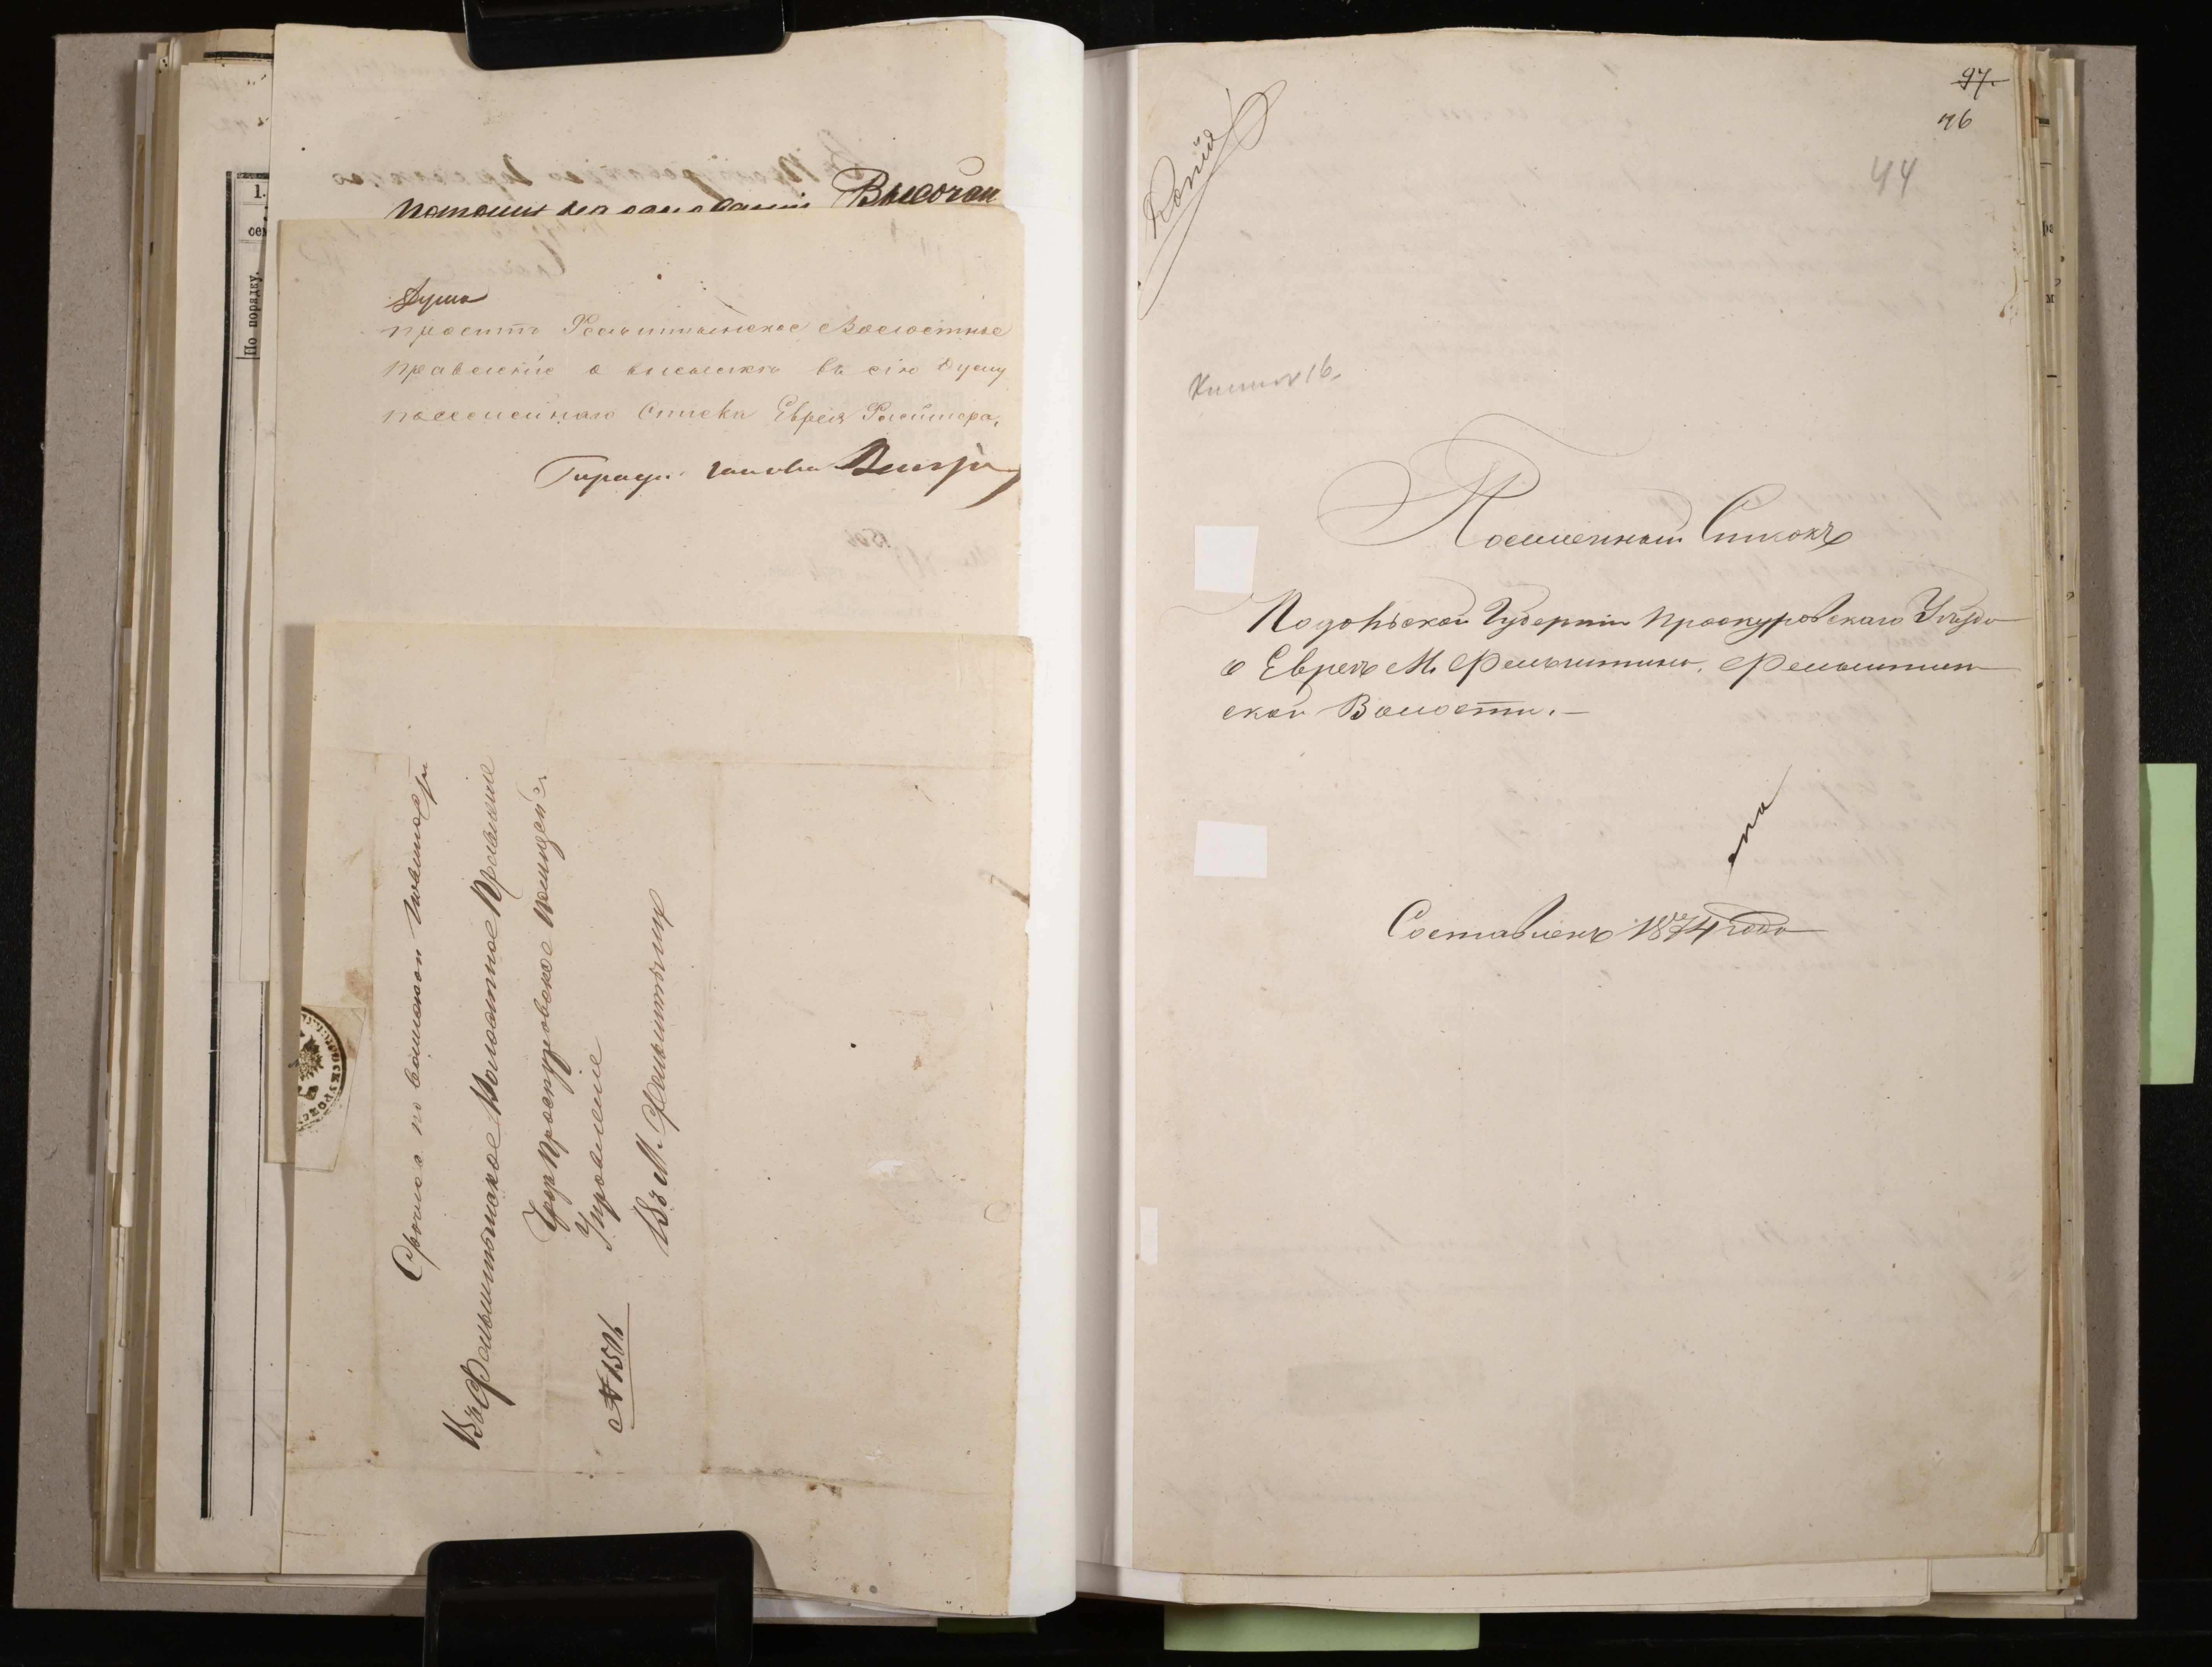 1.
По порядку.
Высочай
Дума
проситъ Фельштынское Волостное
Правленіе о высылкѣ въ сію Думу
посемейнаго Списка Еврея
голова
Срочна по воинской повинности
Въ Фельштынское Волостное Правленіе
Чрез Проскуровское Полицей:
Управленіе
№ 1506
Въ М. Фельштынъ
Копія
97.
46
44
16.
Посемейный Списокъ
Подольской Губерніи Проскуровскаго Уѣзда
о Евреѣ М. Фельштина, Фельштин
ской Волости. —
Составленъ 1874 года